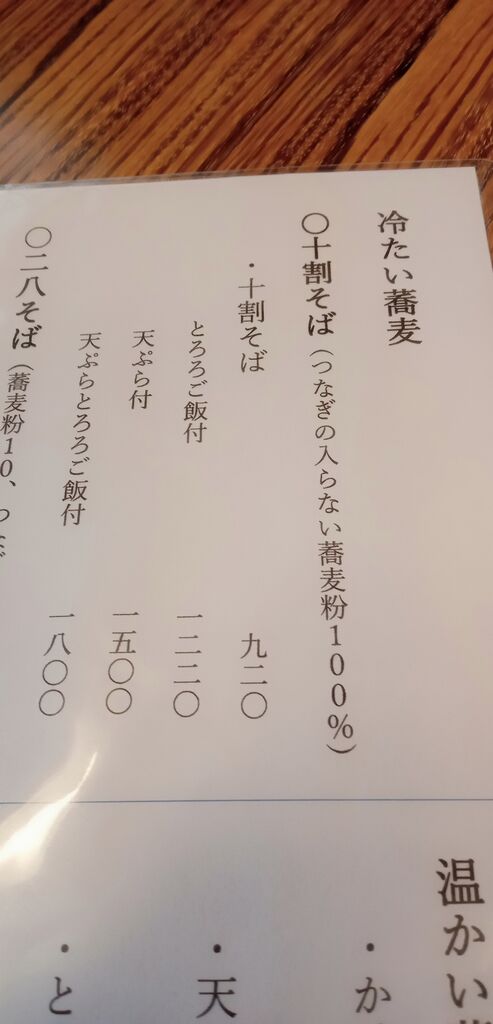 冷たい蕎麦
〇十割そば（つなぎの入らない蕎麦粉１００％）
・十割そば 九二〇
とろろご飯付 一二二〇
天ぷら付 一五〇〇
天ぷらとろろご飯付 一八〇〇
〇二八そば（蕎麦粉１０、つなぎ
温かい
・か
・天
・と